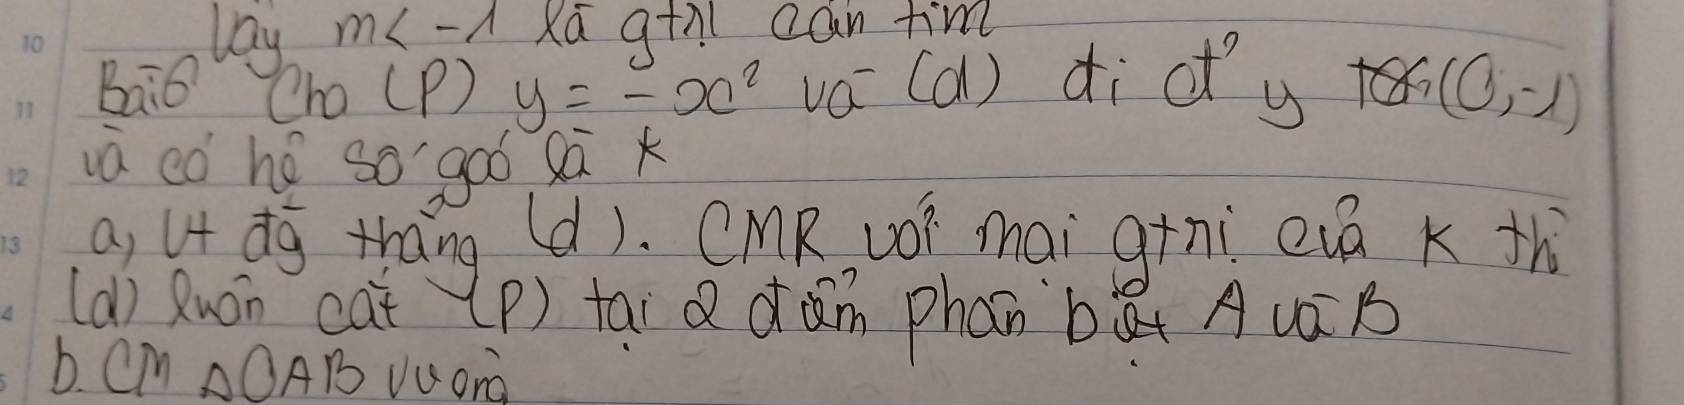 Vậy m< -1 là gtrị cần tìm
Bài 6 Cho (P) y = -x² và (d) đi đ' y (0;-1)
và có hệ số góc là k
a, Vt đg thẳng (d). CMR với mọi gtrị của k thì
(d) luôn cắt (P) tại 2 điểm phân biệt A và B
b. CM △OAB vuông